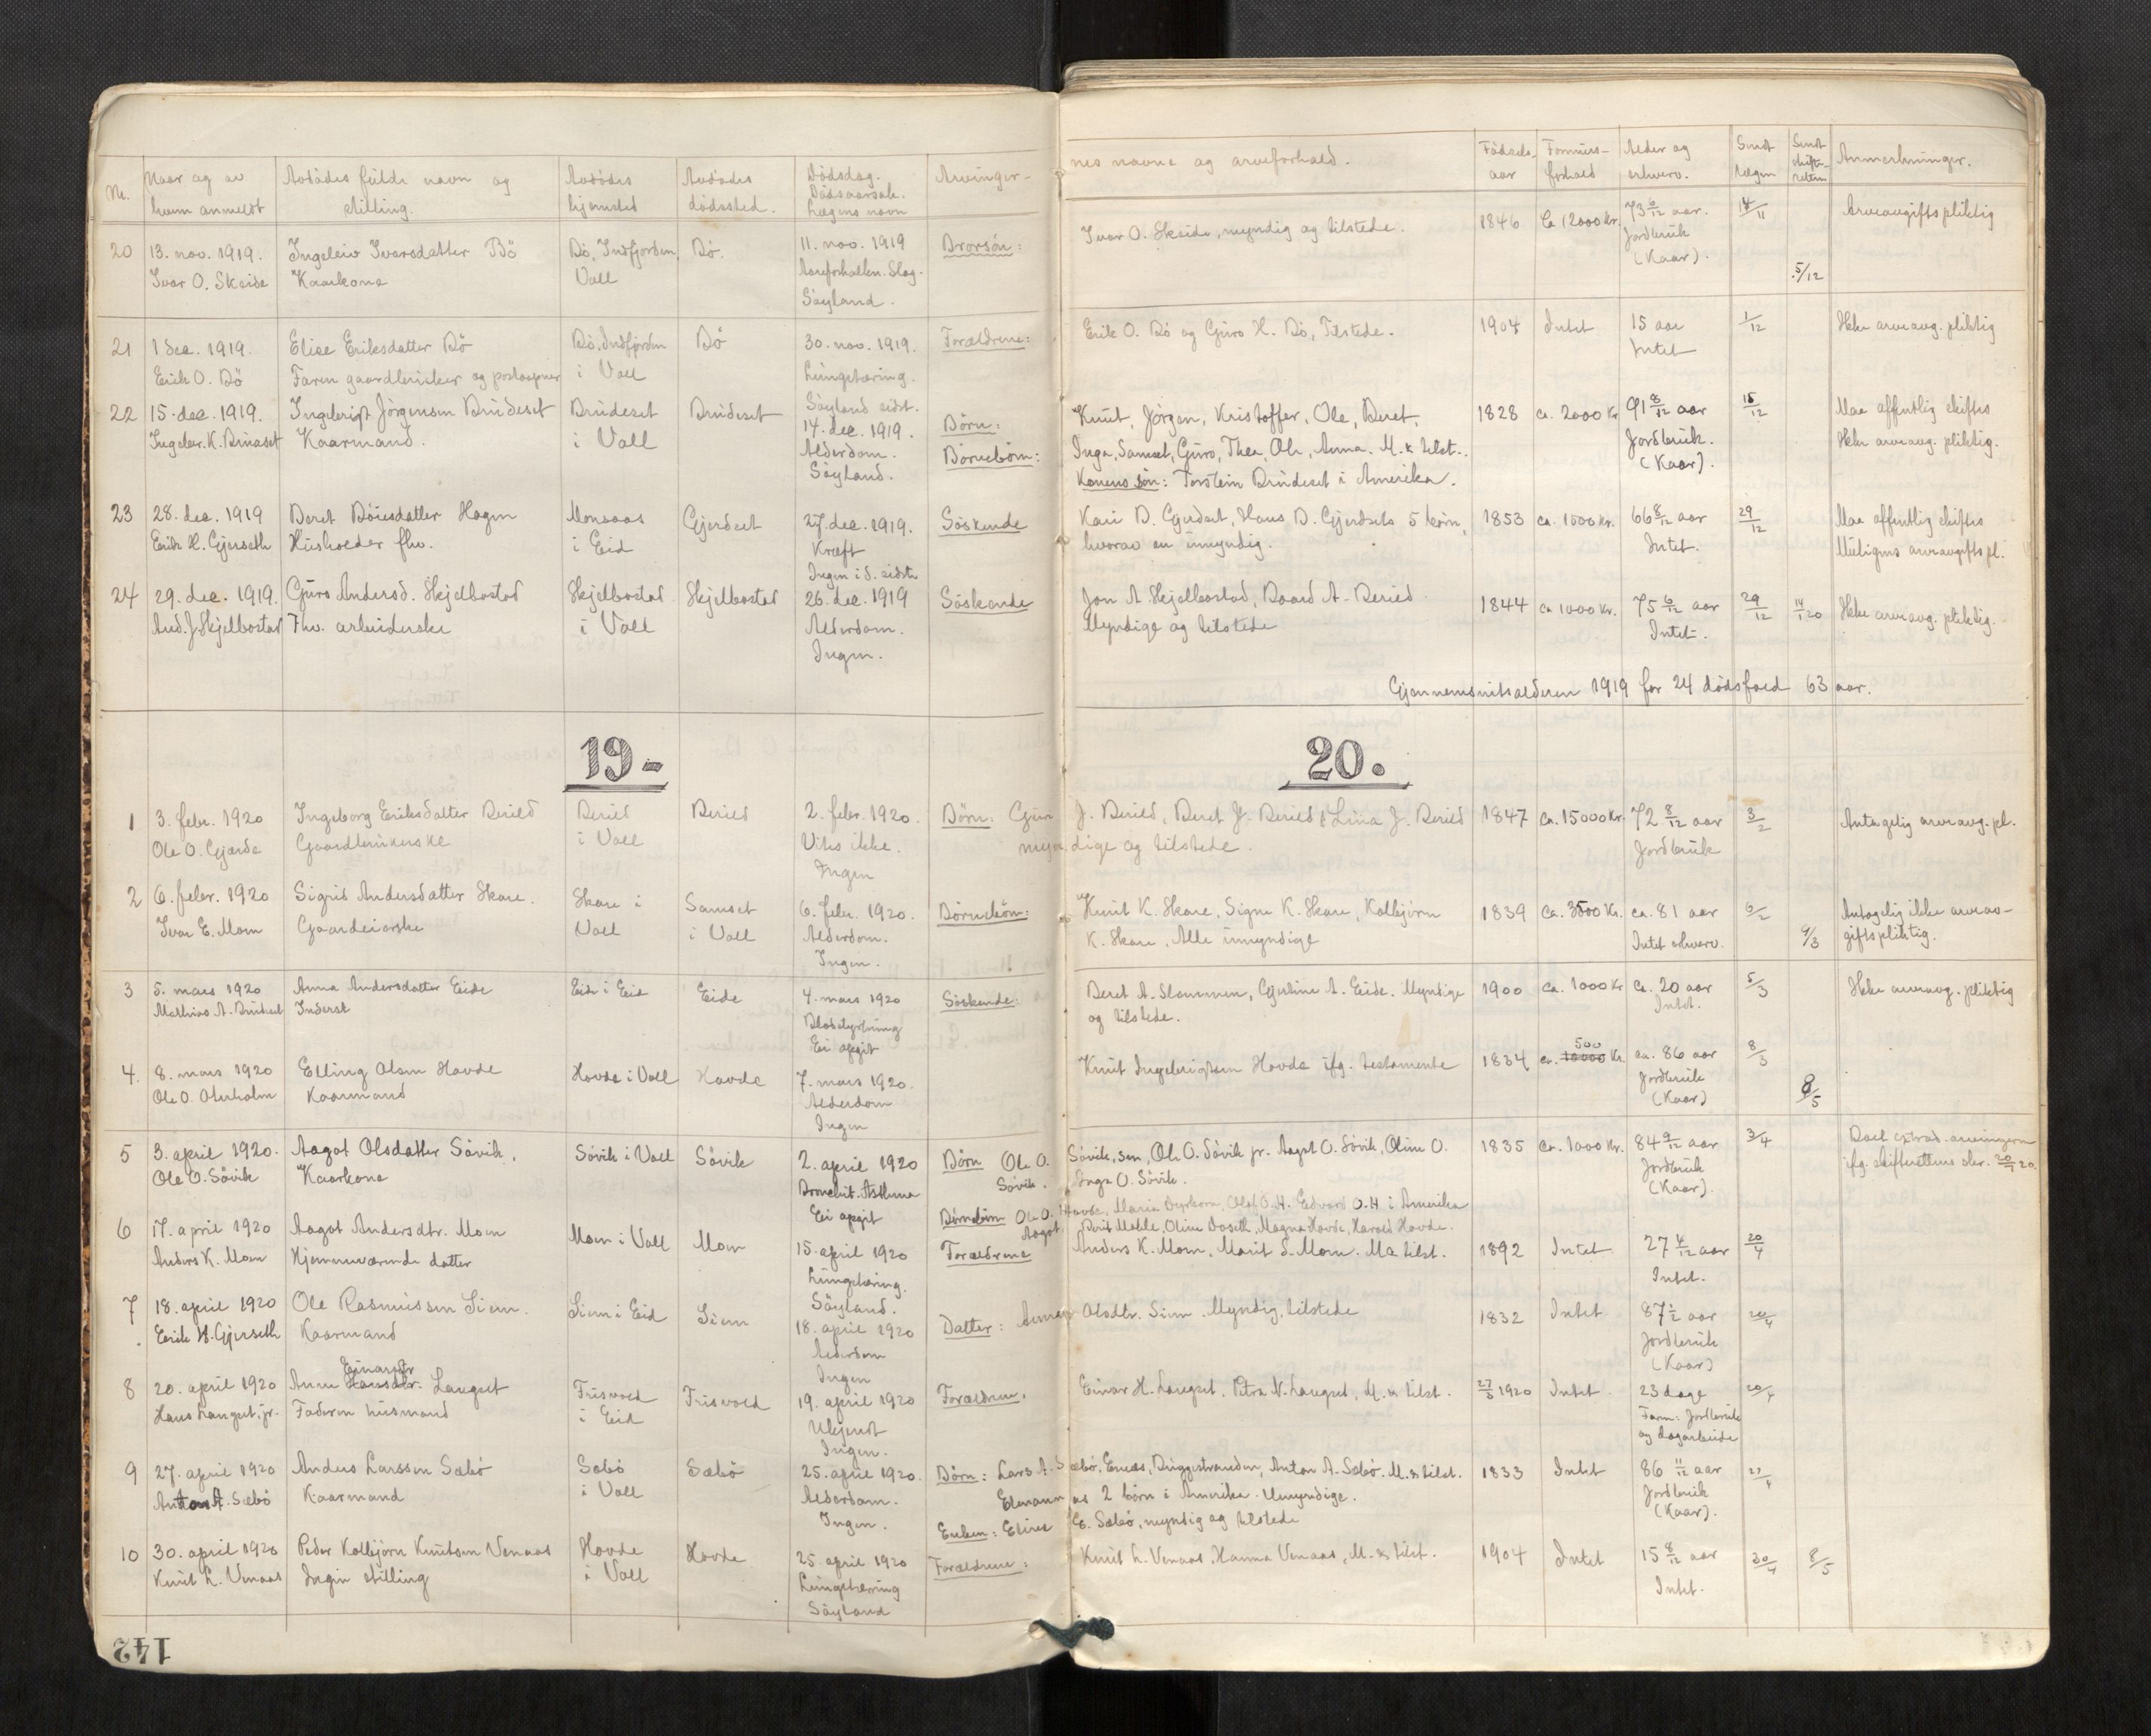 Nr.
Naar og av
hvem anmeldt
Avdødes fulde navn og
stilling.
Avdødes
hjemsted
Avdødes
dødssted.
Dødsdag.
Dødsaarsak.
Lægens navn
Arvinger-
nes navne og arveforhold.
Fødsels-
aar
Formues-
forhold
Alder og
erhverv.
Sendt
Lægen
Sendt
skifte-
retten
Anmerkninger.
20
13. nov. 1919.
Ivar O. Skeide
Ingeleiv Ivarsdatter Bö
Kaarkone
Bö, Indfjorden,
Voll
Bö.
11. nov. 1919
Aareforkalkn. Slag.
Søyland.
Brorsøn:
Ivar O. Skeide, myndig og tilstede.
1846
Ca 12000 kr.
73 6/12 aar.
Jordbruk
(Kaar).
14/11
5/12
Arveavgiftspliktig
21
1 dec. 1919.
Erik O. Bö
Elise Eriksdatter Bö
Faren gaardbruker og postaapner
Bö, Indfjorden
i Voll
Bö
30. nov. 1919.
Lungetæring.
Søyland sidst.
Forældrene:
Erik O. Bö og Guro H. Bö, Tilstede.
1904
Intet
15 aar
Intet
1/12
Ikke arveavg. pliktig
22
15. dec. 1919.
Ingebr. K. Bruaset
Ingebrigt Jörgensen Brudeset
Kaarmand.
Brudeset
i Voll
Brudeset
14. dec. 1919.
Alderdom.
Søyland.
Børn:
Børnebørn:
Knut, Jörgen, Kristoffer, Ole, Beret,
Inga, Samuel, Guro, Thea, Ole, Anna. M. & tilst.
Konens søn: Torstein Brudeset i Amerika.
1828
ca. 2000 Kr
91 8/12 aar
Jordbruk.
(Kaar).
15/12
Maa offentlig skiftes
Ikke arveavg. pliktig.
23
28. dec. 1919
Erik H. Gjerseth
Beret Böiesdatter Hagen
Husholder fhv.
Monsaas
i Eid
Gjerdset
27. dec. 1919.
Kræft
Ingen i d. sidste
Søskende
Kari B. Gjerdset, Hans B. Gjerdsets 5 børn,
hvorav en umyndig.
1853
ca. 1500 kr.
66 8/12 aar
Intet.
29/12
Maa offentlig skiftes
Muligens arveavgiftspl.
24
29. dec. 1919.
And. J. Skjelbostad
Guro Andersd. Skjelbostad
Fhv. arbeiderske
Skjelbostad
i Voll
Skjelbostad
26. dec. 1919
Alderdom.
Ingen.
Søskende
Jon A. Skjelbostad, Baard A. Berild
Myndige og tilstede
1844
ca 1000 Kr.
75 6/12 aar
Intet.
29/12
14/1 20
Ikke arveavg. pliktig.
Gjennemsnitsalderen 1919 for 24 dödsfald 63 aar.
19-
20.
1
3. febr. 1920
Ole O. Gjerde
Ingeborg Eriksdatter Berild
Gaardbrukerske
Berild
i Voll
Berild
2. febr. 1920.
Vites ikke.
Ingen
Børn: Guro J. Berild, Beret J. Berild & Lina J. Berild
myndige og tilstede.
1847
ca. 15000 kr.
72 8/12 aar
Jordbruk
3/2
Antagelig arveavg. pl.
2
6. febr. 1920
Ivar E. Moen
Sigrid Andersdatter Skare.
Gaardeierske
Skare i
Voll
Samset
i Voll
6. febr. 1920.
Alderdom.
Ingen.
Børnebørn:
Knut K. Skare, Signe K. Skare, Kolbjörn
K. Skare, Alle umyndige
1839
ca. 3500 Kr.
ca. 81 aar
Intet erhverv.
6/2
9/3
Antagelig ikke arveav-
giftspliktig.
3
5. mars 1920
Mathias A. Brudeset
Anna Andersdatter Eide
Inderst
Eide i Eid
Eide
4. mars 1920
Blodstyrtning
Ei opgit
Søskende:
Beret A. Slemmen, Gjertine A. Eide. Myndige
og tilstede.
1900
ca. 1000 Kr
ca. 20 aar
Intet.
5/3
Ikke arveavg. pliktig
4.
8. mars 1920
Ole O. Okerholm
Elling Olsen Hovde
Kaarmand
Hovde i Voll
Hovde
7. mars 1920.
Alderdom
Ingen
Knut Ingebrigtsen Hovde ifg. testamente
1834
500
ca. 10000 Kr.
ca. 86 aar
Jordbruk
(Kaar)
8/3
8/5
5
3. april 1920.
Ole O. Søvik
Aagot Olsdatter Søvik.
Kaarkone
Søvik i Voll
Søvik
2. april 1920
Bronchit. Asthma
Ei opgit
Børn Ole O. Søvik, sen, Ole O. Søvik jr. Aagot O. Søvik, Oline O.
Søvik. Inga O. Søvik.
Børnebørn Ole O. Hovde, Maria Dyrkorn, Olaf O. H. Edvard O. H i Amerika
Aagot, Berit Moldle, Oline Voseth, Magna Hovde, Harald Hovde.
1835
ca. 1000 Kr.
84 9/12 aar
Jordbruk
(Kaar).
3/4
Boet extrad. arvingerne
ifg. skifterettens skr. 20/7 20.
6
17. april 1920
Anders K. Moen
Aagot Andersdtr. Moen
Hjemmeværende datter
Moen i Voll
Moen
15. april 1920
Lungetæring.
Søyland.
Forældrene
Anders K. Moen, Marit S. Moen. M & tilst.
1892
Intet
27 4/12 aar
Intet.
20/4
7
18. april 1920
Erik H. Gjerseth
Ole Rasmussen Siem.
Kaarmand
Siem i Eid
Siem
18. april 1920
Alderdom
Ingen
Datter: Anne Olsdtr. Siem. Myndig, tilstede
1832
Intet
87 1/2 aar
Jordbruk
(Kaar)
20/4
8
20. april 1920
Hans Langset jr.
Einarsdtr
Anne Hansdtr. Langset
Faderen husmand
Frisvold
i Eid
Frisvold
19. april 1920
Ukjendt
Ingen.
Forældrene.
Einar H. Langset. Petra N. Langset, M. & tilst.
27/3 1920
Intet
23 dage
Faren: Jordbruk
og dagarbeide
20/4
9
27. april 1920
Anton A. Sæbö
Anders Larssen Sæbö
Kaarmand
Sæbö
i Voll
Sæbö
25. april 1920.
Alderdom.
Ingen.
Børn: Lars A. Sæbö, Eneas, Driggstranden, Anton A. Sæbö. M. & tilst.
2 børn i Amerika. Umyndige.
Enken: Eline E. Sæbö, myndig og tilstede
1833
Intet
86 11/12 aar
Jordbruk
(Kaar).
27/4
10
30. april 1920
Knut L. Venaas
Peder Kolbjörn Knutsen Venaas
Ingen stilling
Hovde
i Voll
Hovde
25. april 1920
Lungetæring
Søyland
Forældrene:
Knut L. Venaas, Hanna Venaas, M. & tilst.
1904
Intet
15 8/12 aar
Intet.
30/4
8/5
142